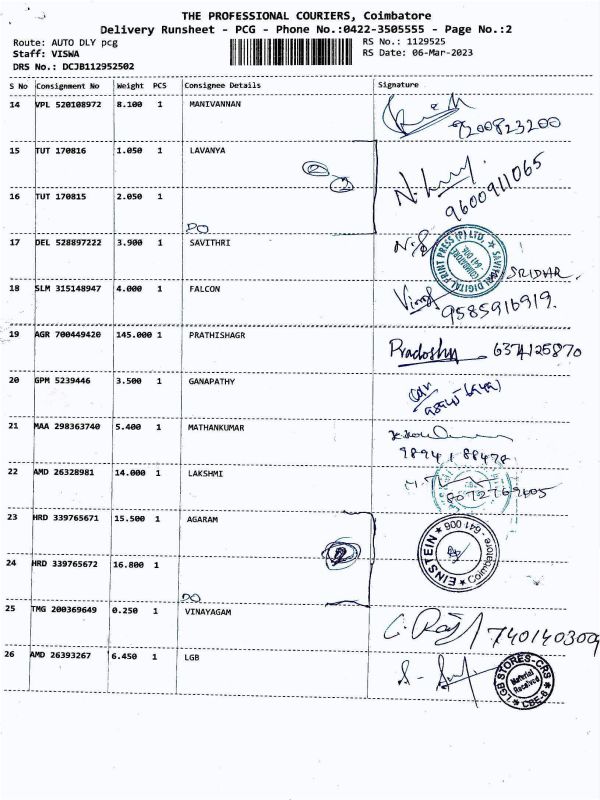 THE PROFESSIONAL COURIERS, Coimbatore
Delivery Runsheet - PCG - Phone No.:0422-3505555 - Page No.:2
Route: AUTO DLY pcg RS No.: 1129525
Staff: VISWA RS Date: 06-Mar-2023
DRS No.: DCJB112952502
S No Consignment No Weight PCS Consignee Details Signature
14 VPL 520108972 8.100 1 MANIVANNAN
9200823200
15 TUT 170816 1.050 1 LAVANYA
2
2
16 TUT 170815 2.050 1
9600911065
DO
17 DEL 528897222 3.900 1 SAVITHRI
SAVITHRI DIGITAL PRINT PRESS (P) LTD,
SRIDHAR
18 SLM 315148947 4.000 1 FALCON
9585916919.
19 AGR 700449420 145.000 1 PRATHISHAGR
6374125870
20 GPM 5239446 3.500 1 GANAPATHY
21 MAA 298363740 5.400 1 MATHANKUMAR
9894188478
22 AMD 26328981 14.000 1 LAKSHMI
8072769405
23 HRD 339765671 15.500 1 AGARAM
EINSTEIN * Coimbatore - 641 006 *
2
24 HRD 339765672 16.800 1
DO
25 TMG 200369649 0.250 1 VINAYAGAM
7401403009
26 AMD 26393267 6.450 1 LGB
LGB STORES-CRS
Material
Received
CBE-6